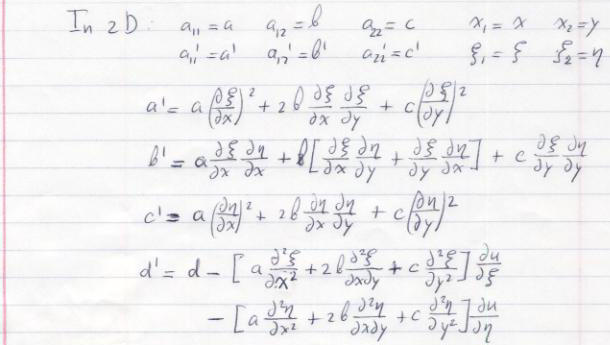 In 2D: a₁₁ = a a₁₂ = b a₂₂ = c x₁ = x x₂ = y
a₁₁' = a' a₁₂' = b' a₂₂' = c' ξ₁ = ξ ξ₂ = η
a' = a(∂ξ/∂x)² + 2b ∂ξ/∂x ∂ξ/∂y + c(∂ξ/∂y)²
b' = a ∂ξ/∂x ∂η/∂x + b[∂ξ/∂x ∂η/∂y + ∂ξ/∂y ∂η/∂x] + c ∂ξ/∂y ∂η/∂y
c' = a(∂η/∂x)² + 2b ∂η/∂x ∂η/∂y + c(∂η/∂y)²
d' = d - [a ∂²ξ/∂x² + 2b ∂²ξ/∂x∂y + c ∂²ξ/∂y²] ∂u/∂ξ
- [a ∂²η/∂x² + 2b ∂²η/∂x∂y + c ∂²η/∂y²] ∂u/∂η